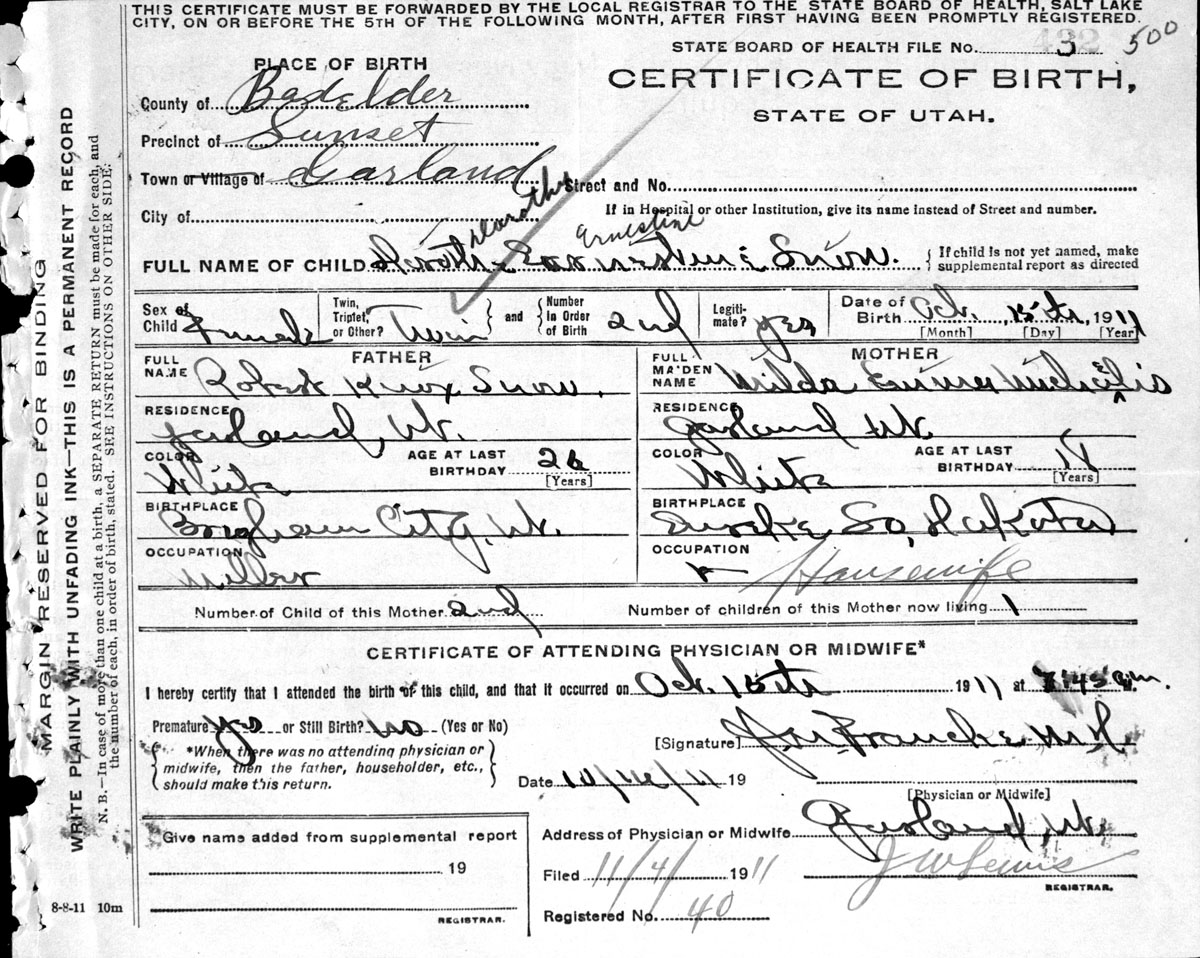 THIS CERTIFICATE MUST BE FORWARDED BY THE LOCAL REGISTRAR TO THE STATE BOARD OF HEALTH, SALT LAKE
CITY, ON OR BEFORE THE 5TH OF THE FOLLOWING MONTH, AFTER FIRST HAVING BEEN PROMPTLY REGISTERED.
STATE BOARD OF HEALTH FILE No. 3 500
CERTIFICATE OF BIRTH,
STATE OF UTAH.
PLACE OF BIRTH
County of Boxelder
Precinct of Sunset
Town or Village of Garland
Street and No.
City of
If in Hospital or other Institution, give its name instead of Street and number.
Dorothy Ernestine
FULL NAME OF CHILD Snow.
If child is not yet named, make
supplemental report as directed
Sex of Child Female
Twin, Triplet, or Other? Twin
and
Number In Order of Birth 2nd
Legitimate? yes
Date of Birth Oct. 15th, 1911
[Month] [Day] [Year]
FATHER
FULL NAME Robert Knox Snow.
RESIDENCE
Garland, Ut.
COLOR White
AGE AT LAST BIRTHDAY 26
[Years]
BIRTHPLACE
Brigham City, Ut.
OCCUPATION
Miller
MOTHER
FULL MAIDEN NAME Wilda Emma
RESIDENCE
Garland Ut.
COLOR White
AGE AT LAST BIRTHDAY 18
[Years]
BIRTHPLACE
So. Dakota
OCCUPATION
Housewife
Number of Child of this Mother 2nd
Number of children of this Mother now living 1
CERTIFICATE OF ATTENDING PHYSICIAN OR MIDWIFE*
I hereby certify that I attended the birth of this child, and that it occurred on Oct. 15th 1911 at 45 m.
Premature yes or Still Birth? no (Yes or No)
*When there was no attending physician or
midwife, then the father, householder, etc.,
should make this return.
[Signature]
Date 19
[Physician or Midwife]
Address of Physician or Midwife Garland, Ut.
Give name added from supplemental report
19
REGISTRAR.
Filed 11/4/ 1911
J W Lewis
REGISTRAR.
Registered No. 40
8-8-11 10m
MARGIN RESERVED FOR BINDING
WRITE PLAINLY WITH UNFADING INK—THIS IS A PERMANENT RECORD
N. B.—In case of more than one child at a birth, a SEPARATE RETURN must be made for each, and
the number of each, in order of birth, stated. SEE INSTRUCTIONS ON OTHER SIDE.